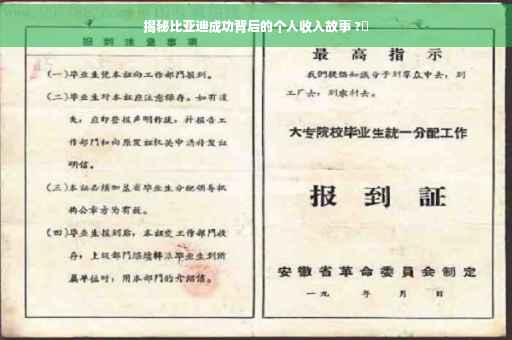 揭秘比亚迪成功背后的个人收入故事 ?
报到注意事项
(一)毕业生凭本证向工作部门报到。
(二)毕业生对本证应注意保存。如有遗
失,应即登报声明作废,并报告工
作部门和向原发证机关申请补发证
明信。
(三)本证必须加盖省毕业生分配领导机
构公章方为有效。
(四)毕业生报到后,本证交工作部门收
存;上级部门继续转派毕业生到所
属单位时,用本部门的介绍信。
最高指示
我们提倡知识分子到群众中去,到
工厂去,到农村去。
大专院校毕业生統一分配工作
报到証
安徽省革命委員会制定
一九 年 月 日